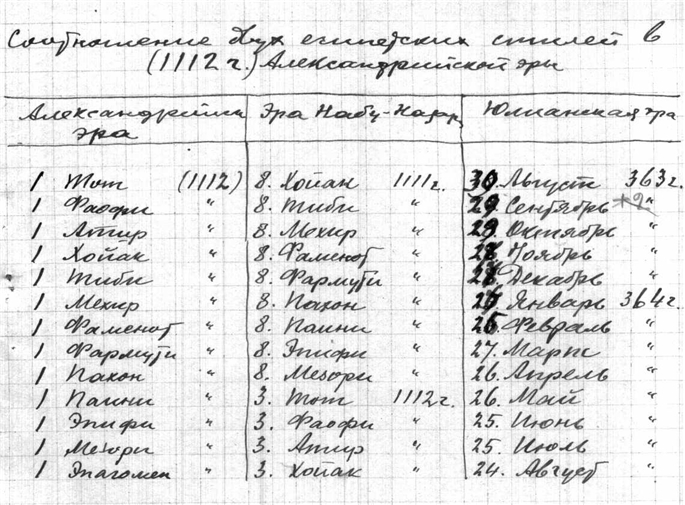 Соотношение двух египетских стилей в
(1112 г.) Александрийской эры
Александрийск. Эра Набу-Назар. Юлианская эра
эра
1 Тот (1112) 8. Хойак 1111 г. 30. Август 363 г.
1 Фаофи " 8. Тиби " 29. Сентябрь *2"
1 Атир " 8. Мехир " 29. Октябрь "
1 Хойак " 8. Фаменот " 28. Ноябрь "
1 Тиби " 8. Фармути " 28. Декабрь "
1 Мехир " 8. Пахон " 27. Январь 364 г.
1 Фаменот " 8. Паини " 26. Февраль "
1 Фармути " 8. Эпифи " 27. Март "
1 Пахон " 8. Мезори " 26. Апрель "
1 Паини " 3. Тот 1112 г. 26. Май "
1 Эпифи " 3. Фаофи " 25. Июнь "
1 Мезори " 3. Атир " 25. Июль "
1 Эпагомен " 3. Хойак " 24. Август "